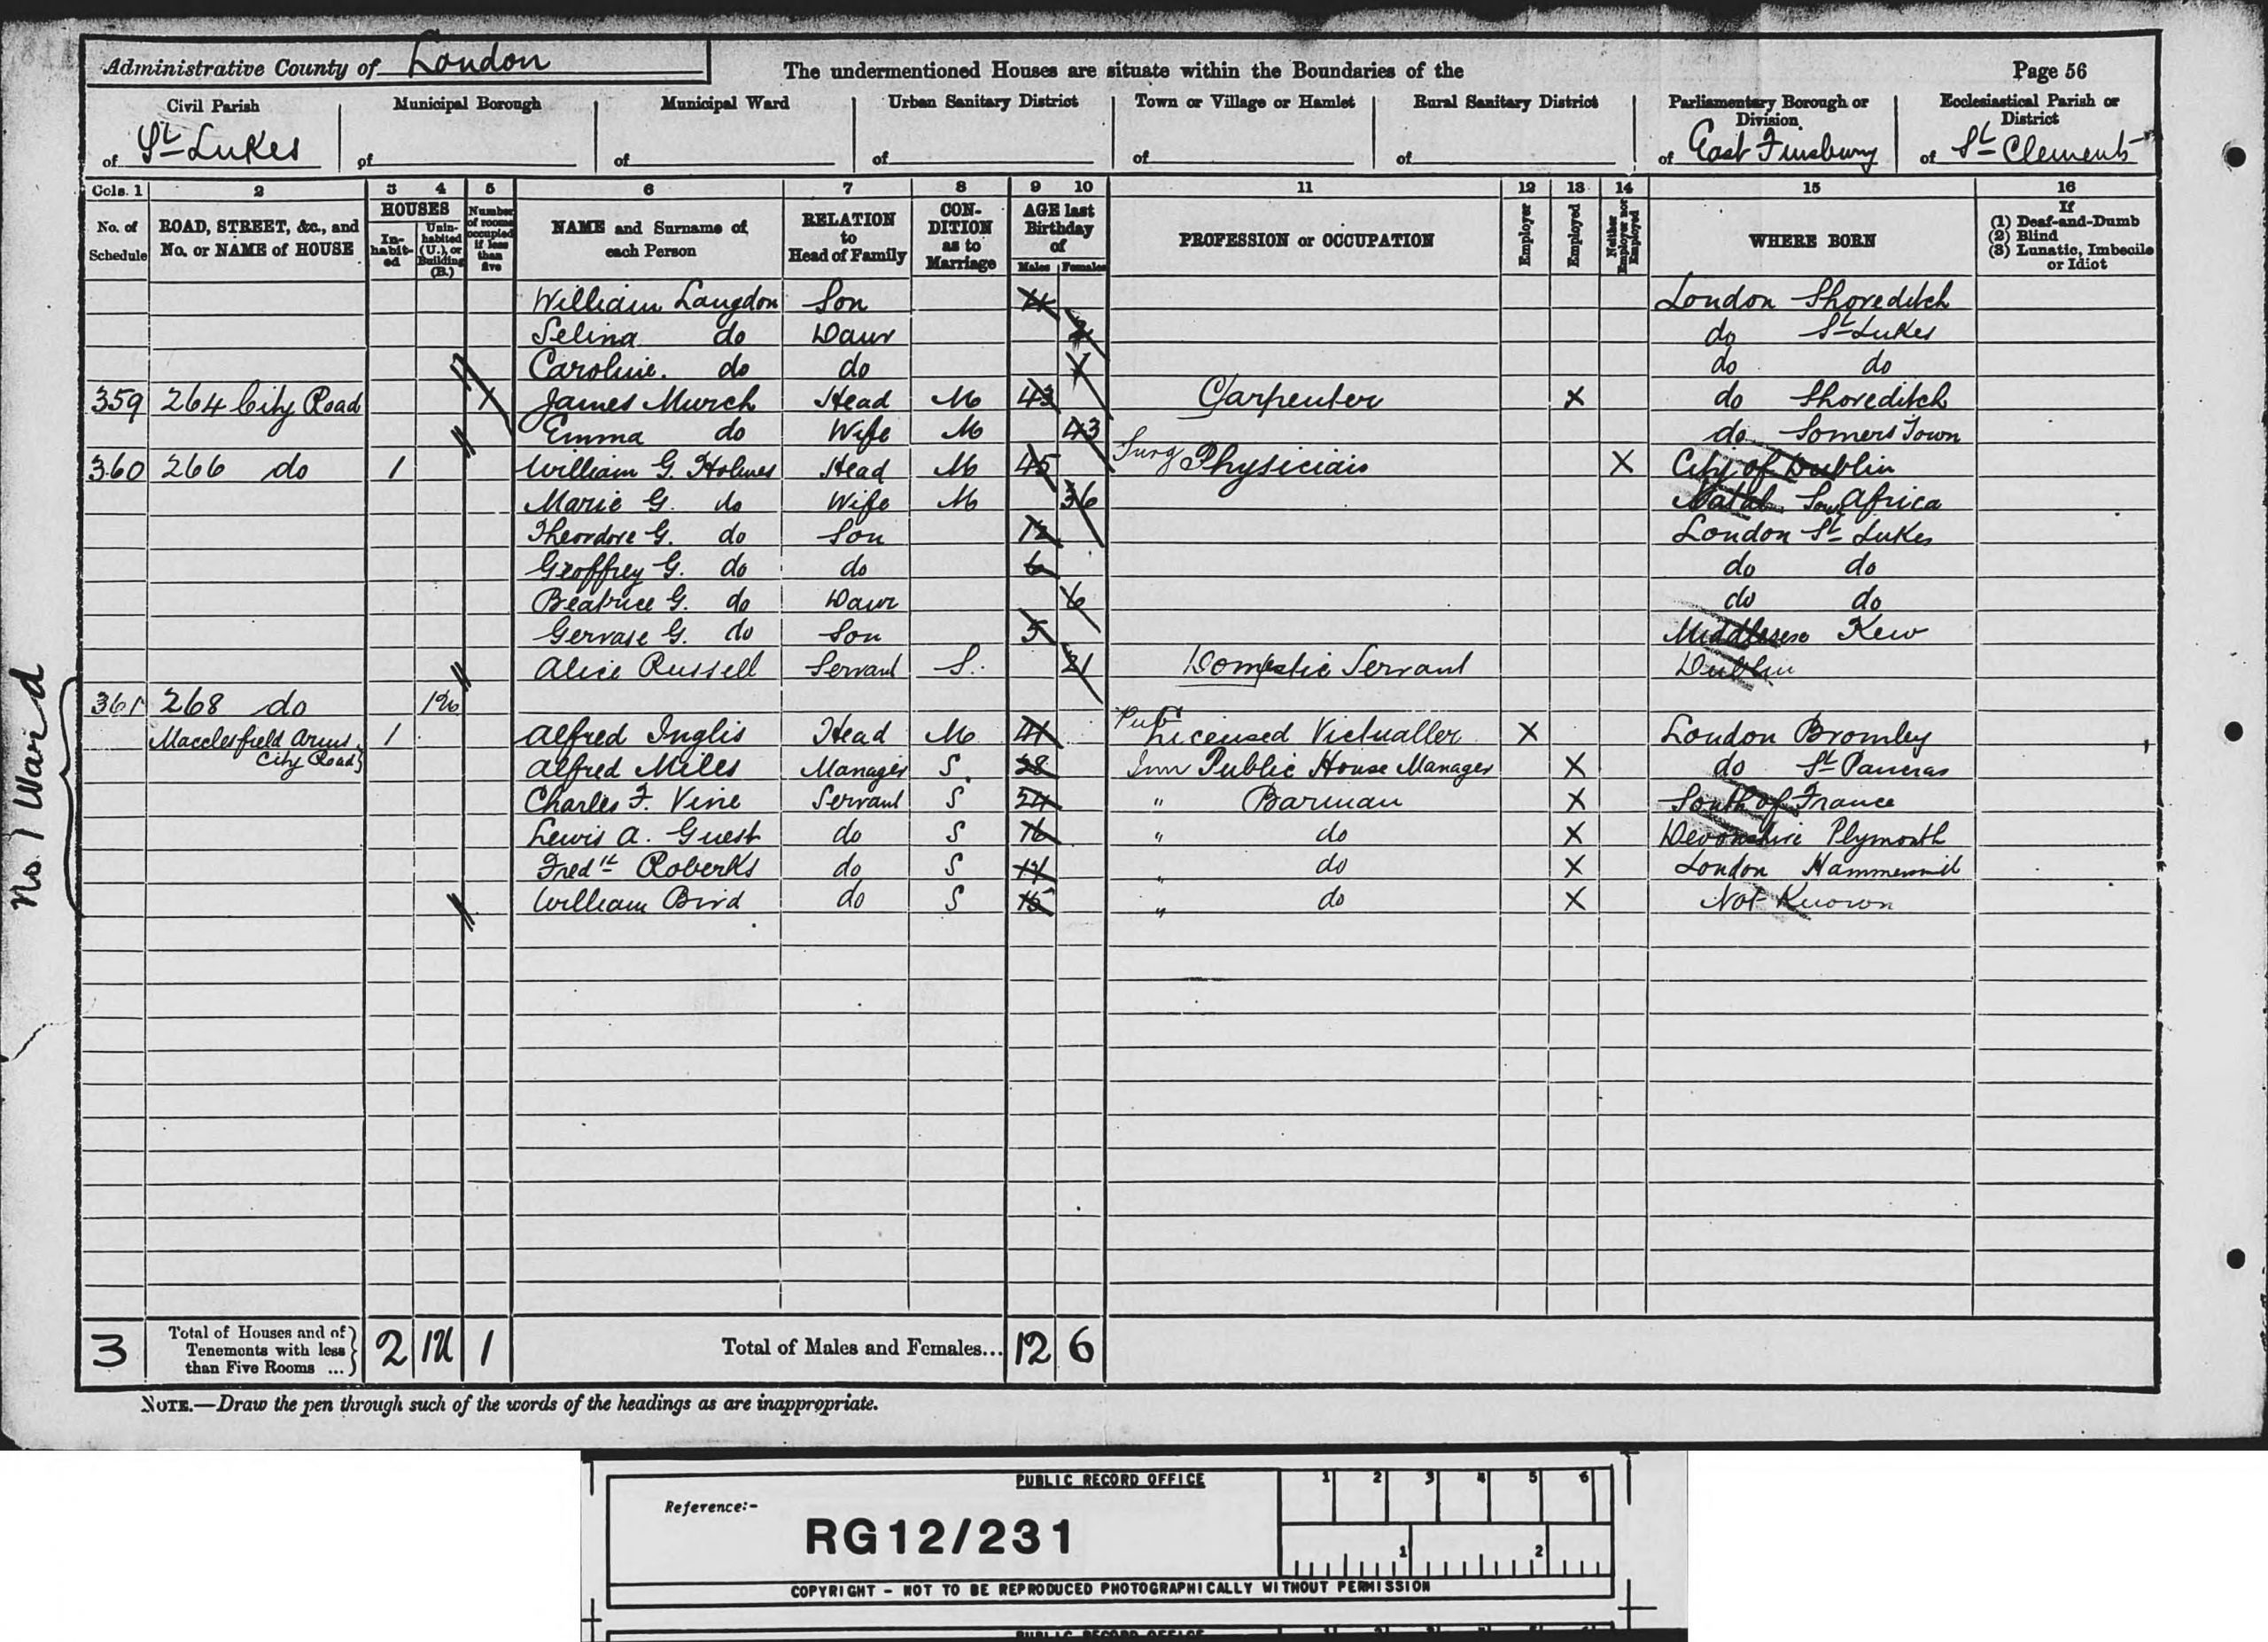 Administrative County of London
The undermentioned Houses are situate within the Boundaries of the
Page 56
Civil Parish of St Lukes
Municipal Borough of
Municipal Ward of
Urban Sanitary District of
Town or Village or Hamlet of
Rural Sanitary District of
Parliamentary Borough or Division of East Finsbury
Ecclesiastical Parish or District of St Clements
Cols. 1 2 3 4 5 6 7 8 9 10 11 12 13 14 15 16
No. of Schedule
ROAD, STREET, &c., and No. or NAME of HOUSE
HOUSES
In-habit-ed
Unin-habited (U.), or Building (B.)
Number of rooms occupied if less than five
NAME and Surname of each Person
RELATION to Head of Family
CON-DITION as to Marriage
AGE last Birthday of
Males Females
PROFESSION or OCCUPATION
Employer
Employed
Neither Employer nor Employed
WHERE BORN
If
(1) Deaf-and-Dumb
(2) Blind
(3) Lunatic, Imbecile or Idiot
William Langdon Son London Shoreditch
Selina do Daur do St Lukes
Caroline do do do do
359 264 City Road James Murch Head M 43 Carpenter X do Shoreditch
Emma do Wife M 43 do Somers Town
360 266 do 1 William G. Holmes Head M 45 Surg Physician X City of Dublin
Marie G. do Wife M 36 Natal Sou Africa
Theordore G. do Son 12 London St Lukes
Geoffrey G. do do 6 do do
Beatrice G. do Daur 6 do do
Gervase G. do Son 5 Middlesex Kew
Alice Russell Servant S. 21 Domestic Servant Dublin
361 268 do
Macclesfield Arms City Road 1 Alfred Inglis Head M 41 Pub Licensed Victualler X London Bromley
Alfred Miles Manager S. 28 Inn Public House Manager X do St Pancras
Charles F. Vine Servant S 24 " Barman X South of France
Lewis A. Guest do S 16 " do X Devonshire Plymouth
Fredk Roberts do S " do X London
William Bird do S " do X Not Known
No. 1 Ward
3 Total of Houses and of Tenements with less than Five Rooms ... 2 1U 1
Total of Males and Females... 12 6
NOTE.—Draw the pen through such of the words of the headings as are inappropriate.
PUBLIC RECORD OFFICE
1 2 3 4 5 6
Reference:-
RG12/231
1 2
COPYRIGHT - NOT TO BE REPRODUCED PHOTOGRAPHICALLY WITHOUT PERMISSION
PUBLIC RECORD OFFICE